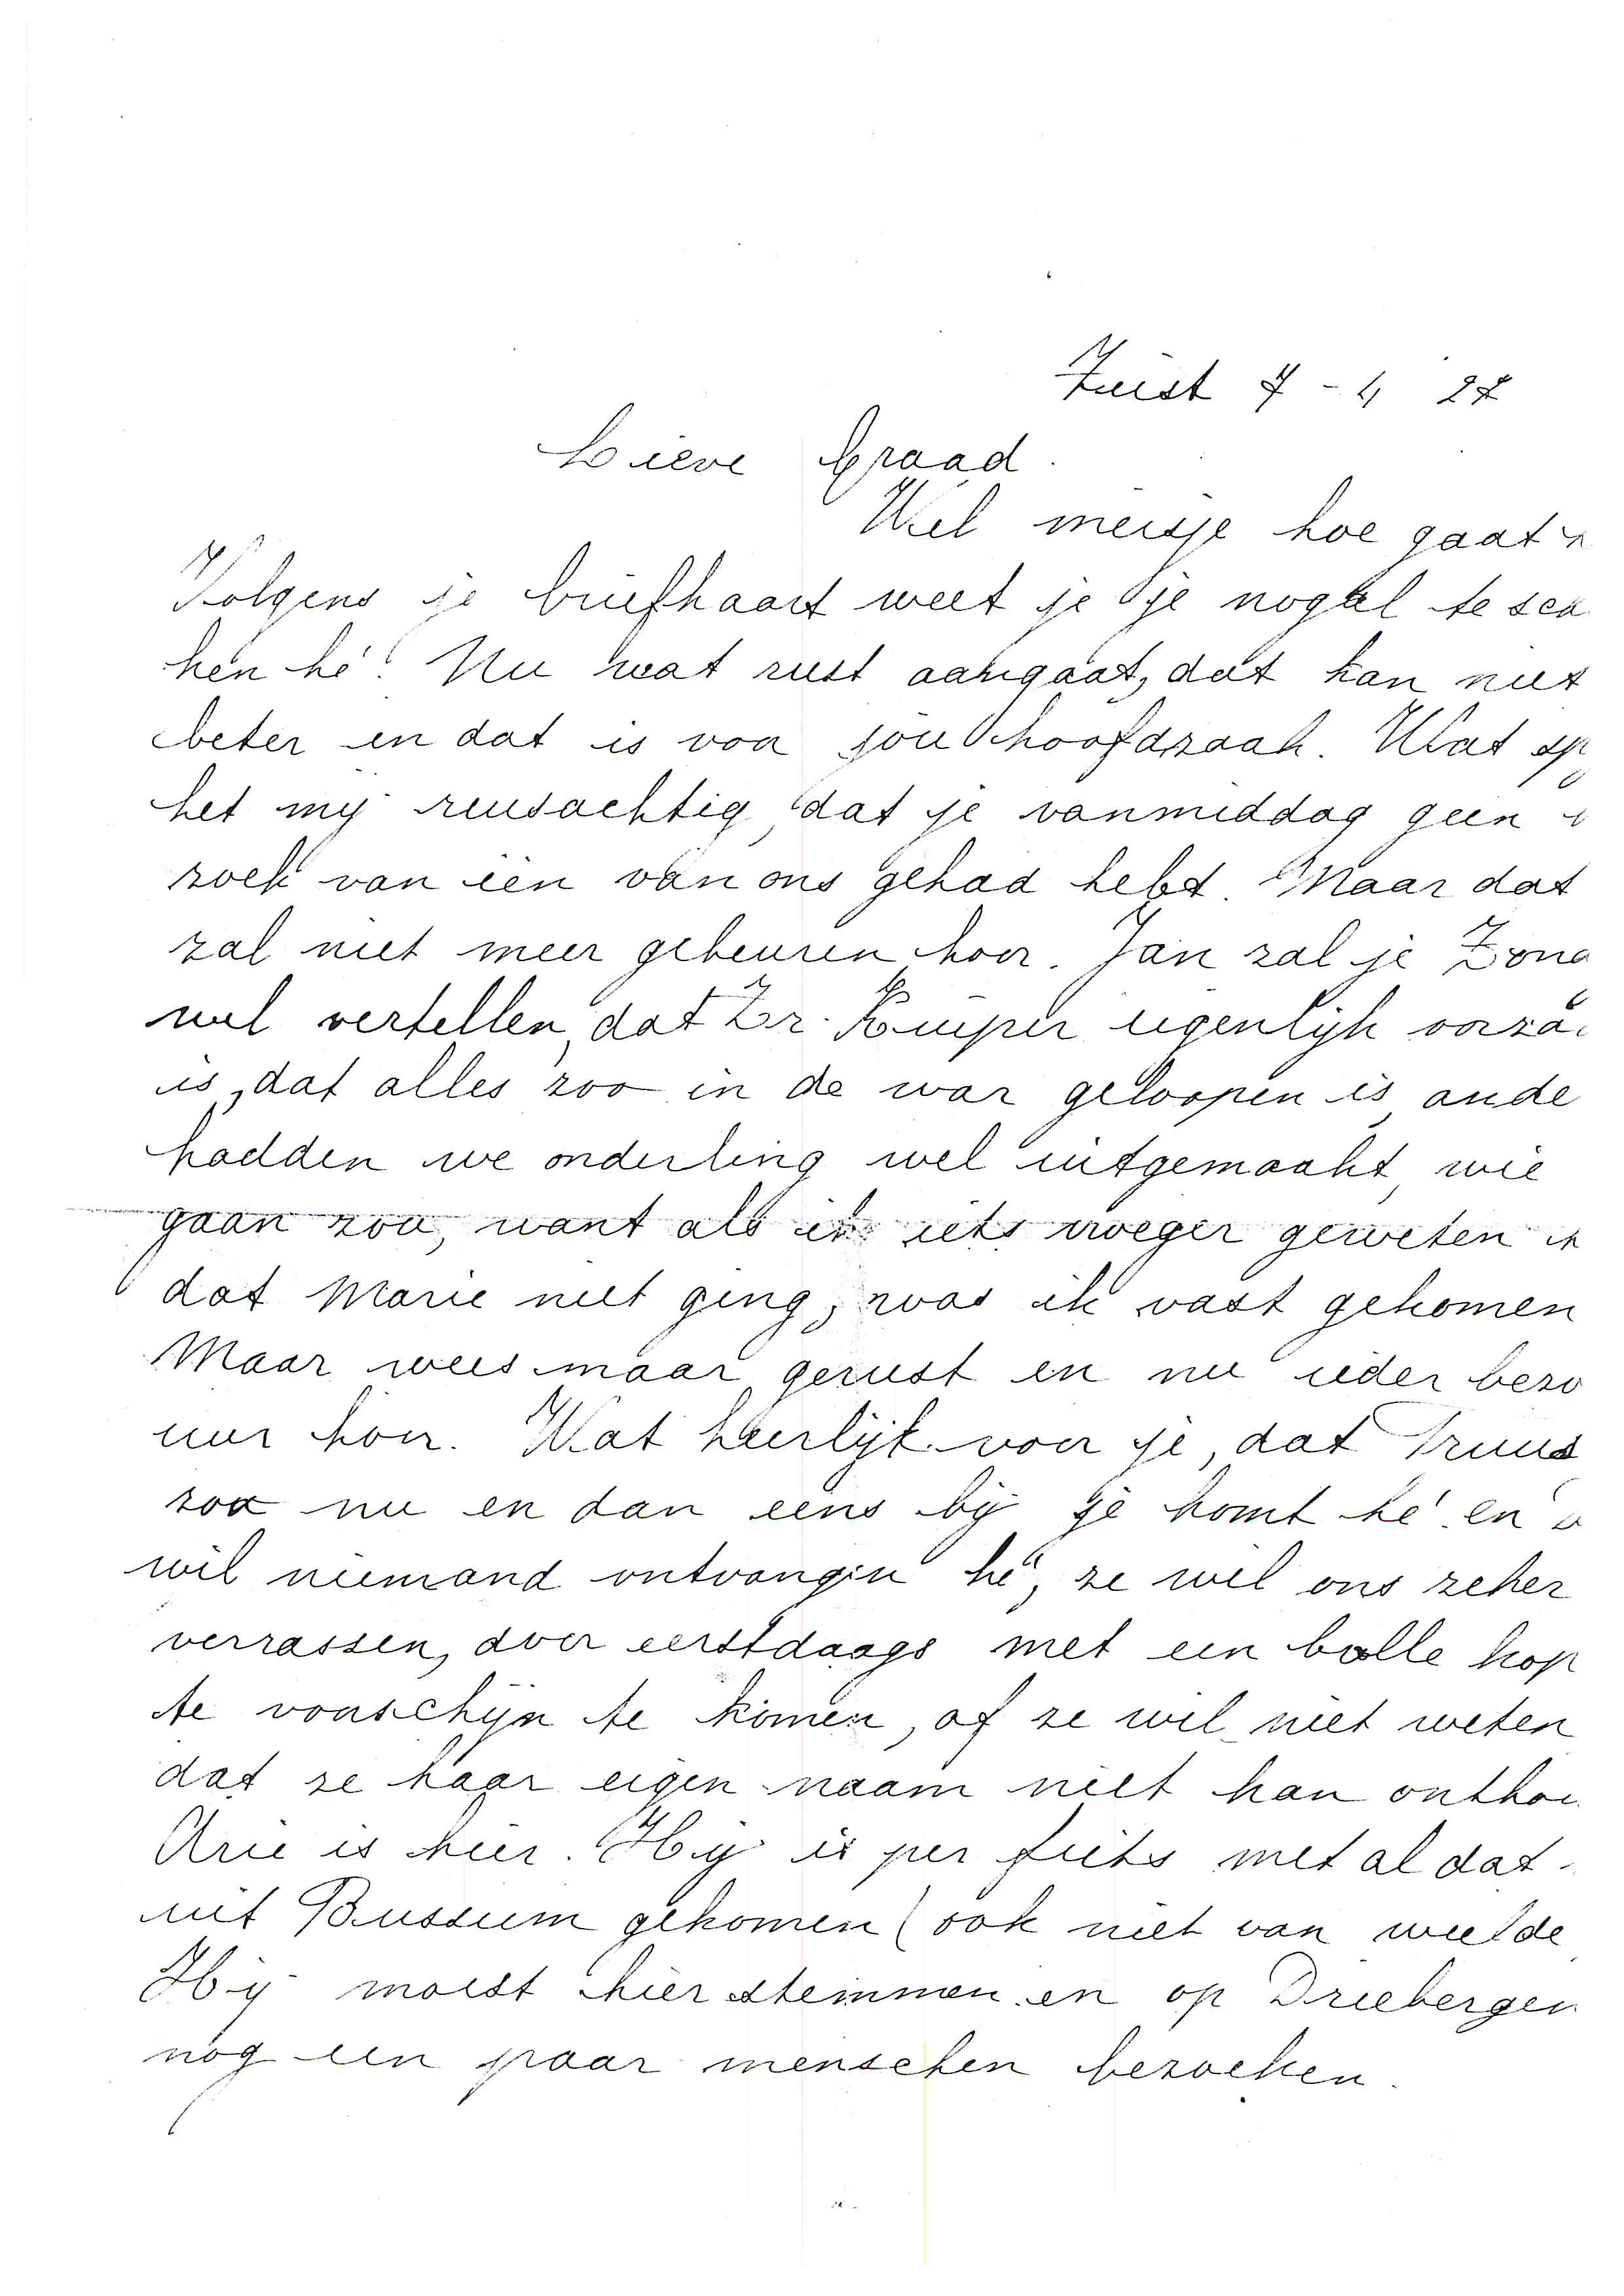 Zeist 7-4 27
Lieve Graad.
Wel meisje hoe gaat
Volgens je briefkaart weet je je nogal te
ken hè! Nu wat rust aangaat, dat kan niet
beter en dat is voor jou hoofdzaak. Wat
het mij reusachtig, dat je vanmiddag geen
zoek van één van ons gehad hebt. Maar dat
zal niet meer gebeuren hoor. Jan zal je Zond
wel vertellen, dat Zr. Kuiper eigenlijk
is, dat alles zoo in de war geloopen is, ande
hadden we onderling wel uitgemaakt, wie
gaan zou, want als ik iets vroeger geweten
dat Marie niet ging, was ik vast gekomen
Maar wees maar gerust en nu ieder bezo
uur hoor. Wat heerlijk voor je, dat Truus
zoo nu en dan eens bij je komt hè en
wil niemand ontvangen hè, ze wil ons zeker
verrassen, door eerstdaags met een bolle kop
te voorschijn te komen, of ze wil niet weten
dat ze haar eigen naam niet kan onthou
Arie is hier. Hij is per fiets met al dat
uit Bussum gekomen (ook niet van weelde
Hij moest hier stemmen en op Driebergen
nog een paar menschen bezoeken.